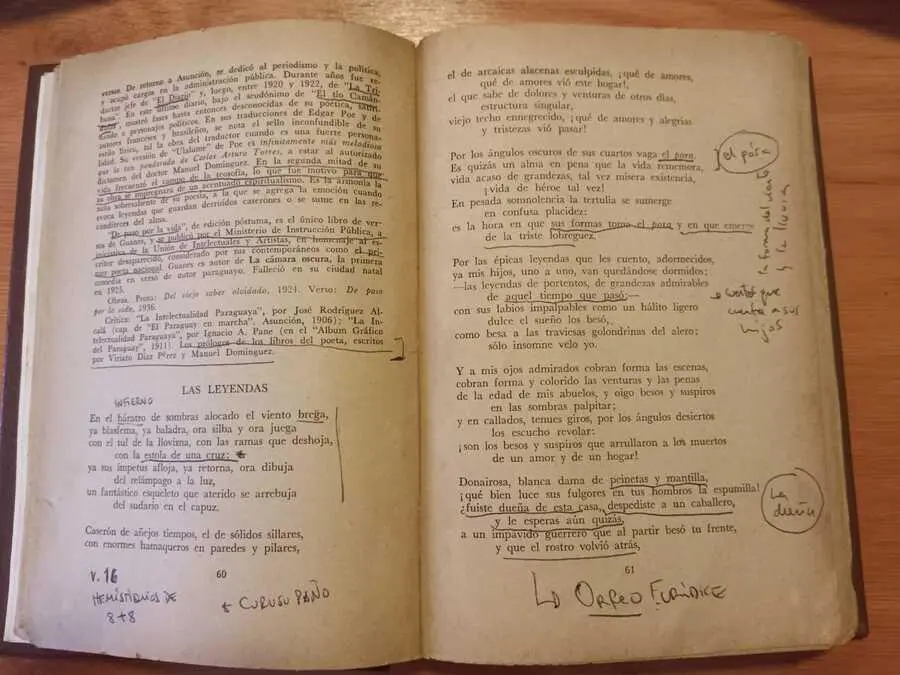 verso. De retorno a Asunción, se dedicó al periodismo y la política,
y ocupó cargos en la administración pública. Durante años fue re-
dactor jefe de "El Diario" y, luego, entre 1920 y 1922, de "La Tri-
buna". En este último diario, bajo el seudónimo de "El tío Camán-
dulas", mostró fases hasta entonces desconocidas de su poética, satiri-
zando a personajes políticos. En sus traducciones de Edgar Poe y de
autores franceses y brasileños, se nota el sello inconfundible de su
estilo lírico, tal la obra del traductor cuando es una fuerte persona-
lidad. Su versión de "Ulalume" de Poe es infinitamente más melodiosa
que la tan ponderada de Carlos Arturo Torres, a estar al autorizado
dictamen del doctor Manuel Domínguez. En la segunda mitad de su
vida frecuentó el campo de la teosofía, lo que fue motivo para que
su obra se impregnara de un acentuado espiritualismo. Es la armonía la
nota sobresaliente de su poesía, a la que se agrega la emoción cuando
evoca leyendas que guardan derruídos caserones o se sume en las re-
condiciones del alma.
"De paso por la vida", de edición póstuma, es el único libro de ver-
sos de Guanes, y se publicó por el Ministerio de Instrucción Pública, a
iniciativa de la Unión de Intelectuales y Artistas, en homenaje al es-
critor desaparecido, considerado por sus contemporáneos como el pri-
mer poeta nacional. Guanes es autor de La cámara oscura, la primera
comedia en verso de autor paraguayo. Falleció en su ciudad natal
en 1925.
Obras. Prosa: Del viejo saber olvidado, 1924. Verso: De paso
por la vida, 1936.
Crítica: "La Intelectualidad Paraguaya", por José Rodríguez Al-
calá (cap. de "El Paraguay en marcha", Asunción, 1906); "La In-
telectualidad Paraguaya", por Ignacio A. Pane (en el "Album Gráfico
del Paraguay", 1911). Los prólogos de los libros del poeta, escritos
por Viriato Díaz Pérez y Manuel Domínguez.
LAS LEYENDAS
INFIERNO
En el báratro de sombras alocado el viento brega,
ya blasfema, ya baladra, ora silba y ora juega
con el tul de la llovizna, con las ramas que deshoja,
con la estola de una cruz;
ya sus ímpetus afloja, ya retorna, ora dibuja
del relámpago a la luz,
un fantástico esqueleto que aterido se arrebuja
del sudario en el capuz.
Caserón de añejos tiempos, el de sólidos sillares,
con enormes hamaqueros en paredes y pilares,
60
v. 16
HEMISTIQUIOS DE
8+8
* CURUSU PAÑO
el de arcaicas alacenas esculpidas, ¡qué de amores,
qué de amores vió este hogar!,
el que sabe de dolores y venturas de otros días,
estructura singular,
viejo techo ennegrecido, ¡qué de amores y alegrías
y tristezas vió pasar!
Por los ángulos oscuros de sus cuartos vaga el pora.
Es quizás un alma en pena que la vida rememora,
vida acaso de grandezas, tal vez mísera existencia,
¡vida de héroe tal vez!
En pesada somnolencia la tertulia se sumerge
en confusa placidez:
es la hora en que sus formas toma el pora y en que emerge
de la triste lobreguez.
el póra
la forma del viento
y la lluvia
Por las épicas leyendas que les cuento, adormecidos,
ya mis hijos, uno a uno, van quedándose dormidos;
—las leyendas de portentos, de grandezas admirables
de aquel tiempo que pasó;—
con sus labios impalpables como un hálito ligero
dulce el sueño los besó,
como besa a las traviesas golondrinas del alero;
sólo insomne velo yo.
cuentos que
cuenta a sus
hijos
Y a mis ojos admirados cobran forma las escenas,
cobran forma y colorido las venturas y las penas
de la edad de mis abuelos, y oigo besos y suspiros
en las sombras palpitar;
y en callados, tenues giros, por los ángulos desiertos
los escucho revolar:
¡son los besos y suspiros que arrullaron a los muertos
de un amor y de un hogar!
Donairosa, blanca dama de peinetas y mantilla,
¡qué bien luce sus fulgores en tus hombros la espumilla!
¿fuiste dueña de esta casa, despediste a un caballero,
y le esperas aún quizás,
a un impávido guerrero que al partir besó tu frente,
y que el rostro volvió atrás,
La
dueña
61
LD ORFEO EURÍDICE